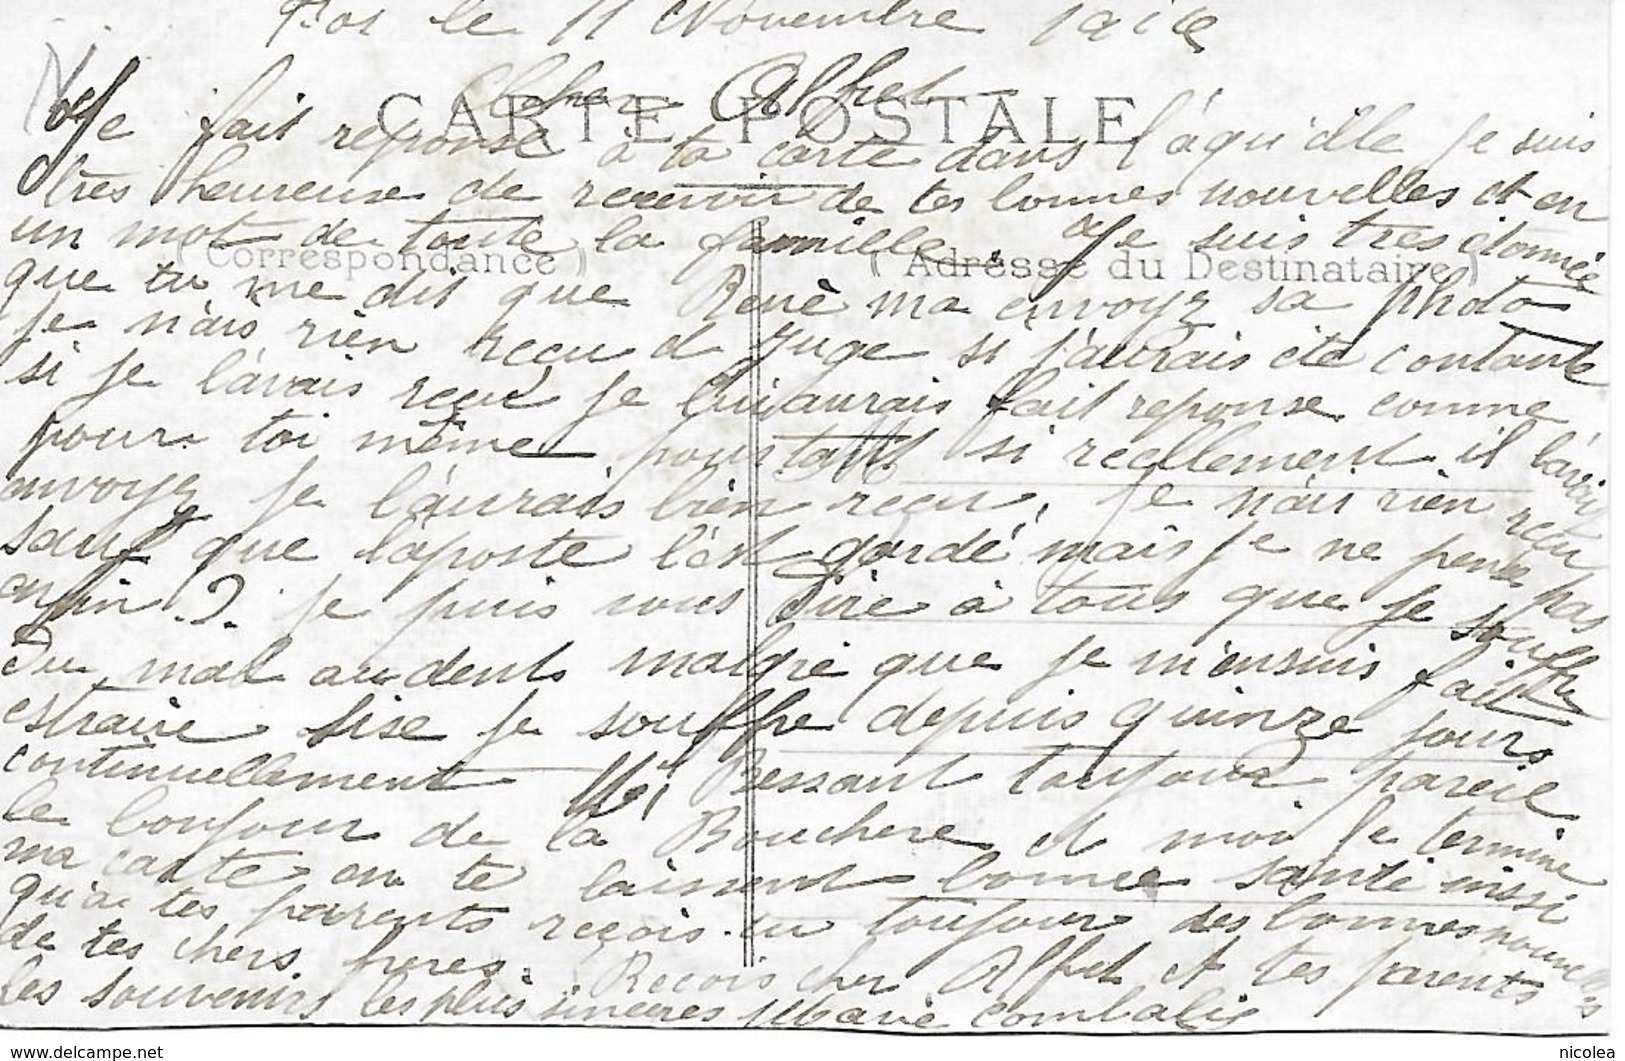 le 11 Novembre
Cher Alfred
CARTE POSTALE
Je fait reponse à ta carte dans l'aqu'elle je suis
très heureuse de recevoir de tes bonnes nouvelles et en
un mot de toute la famille. Je suis très étonnée
(Correspondance) (Adresse du Destinataire)
que tu me dit que René ma envoyz sa photo
je n'ais rien reçu d juge si j'aurais été contante
si je l'avais reçu je lui aurais fait reponse comme
pour toi même pourtant si reellement il l'avais
anvoyz je l'aurais bien reçu, je n'ais rien reçu
sauf que laposte l'est gardé mais je ne penses pas
anfin.?. je puis vous dire à tous que je souffre
du mal au dents malgré que je m'ensuis fait
estraire sise je souffre depuis quinze jours
continuellement Bessant toujours pareil
le bonjour de la Bouchere et moi je termine
ma carte en te laissent bonne santé insi
qu'a tes parents reçois-tu toujour des bonnes nouvelles
de tes chers freres. Recois cher Alfred et tes parents
les souvenirs les plus sincères Marie Combalis
nicolea